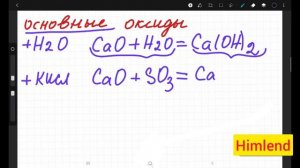 основные оксиды
+H2O CaO + H2O = Ca(OH)2
+ кисл CaO + SO3 = Ca
Himlend